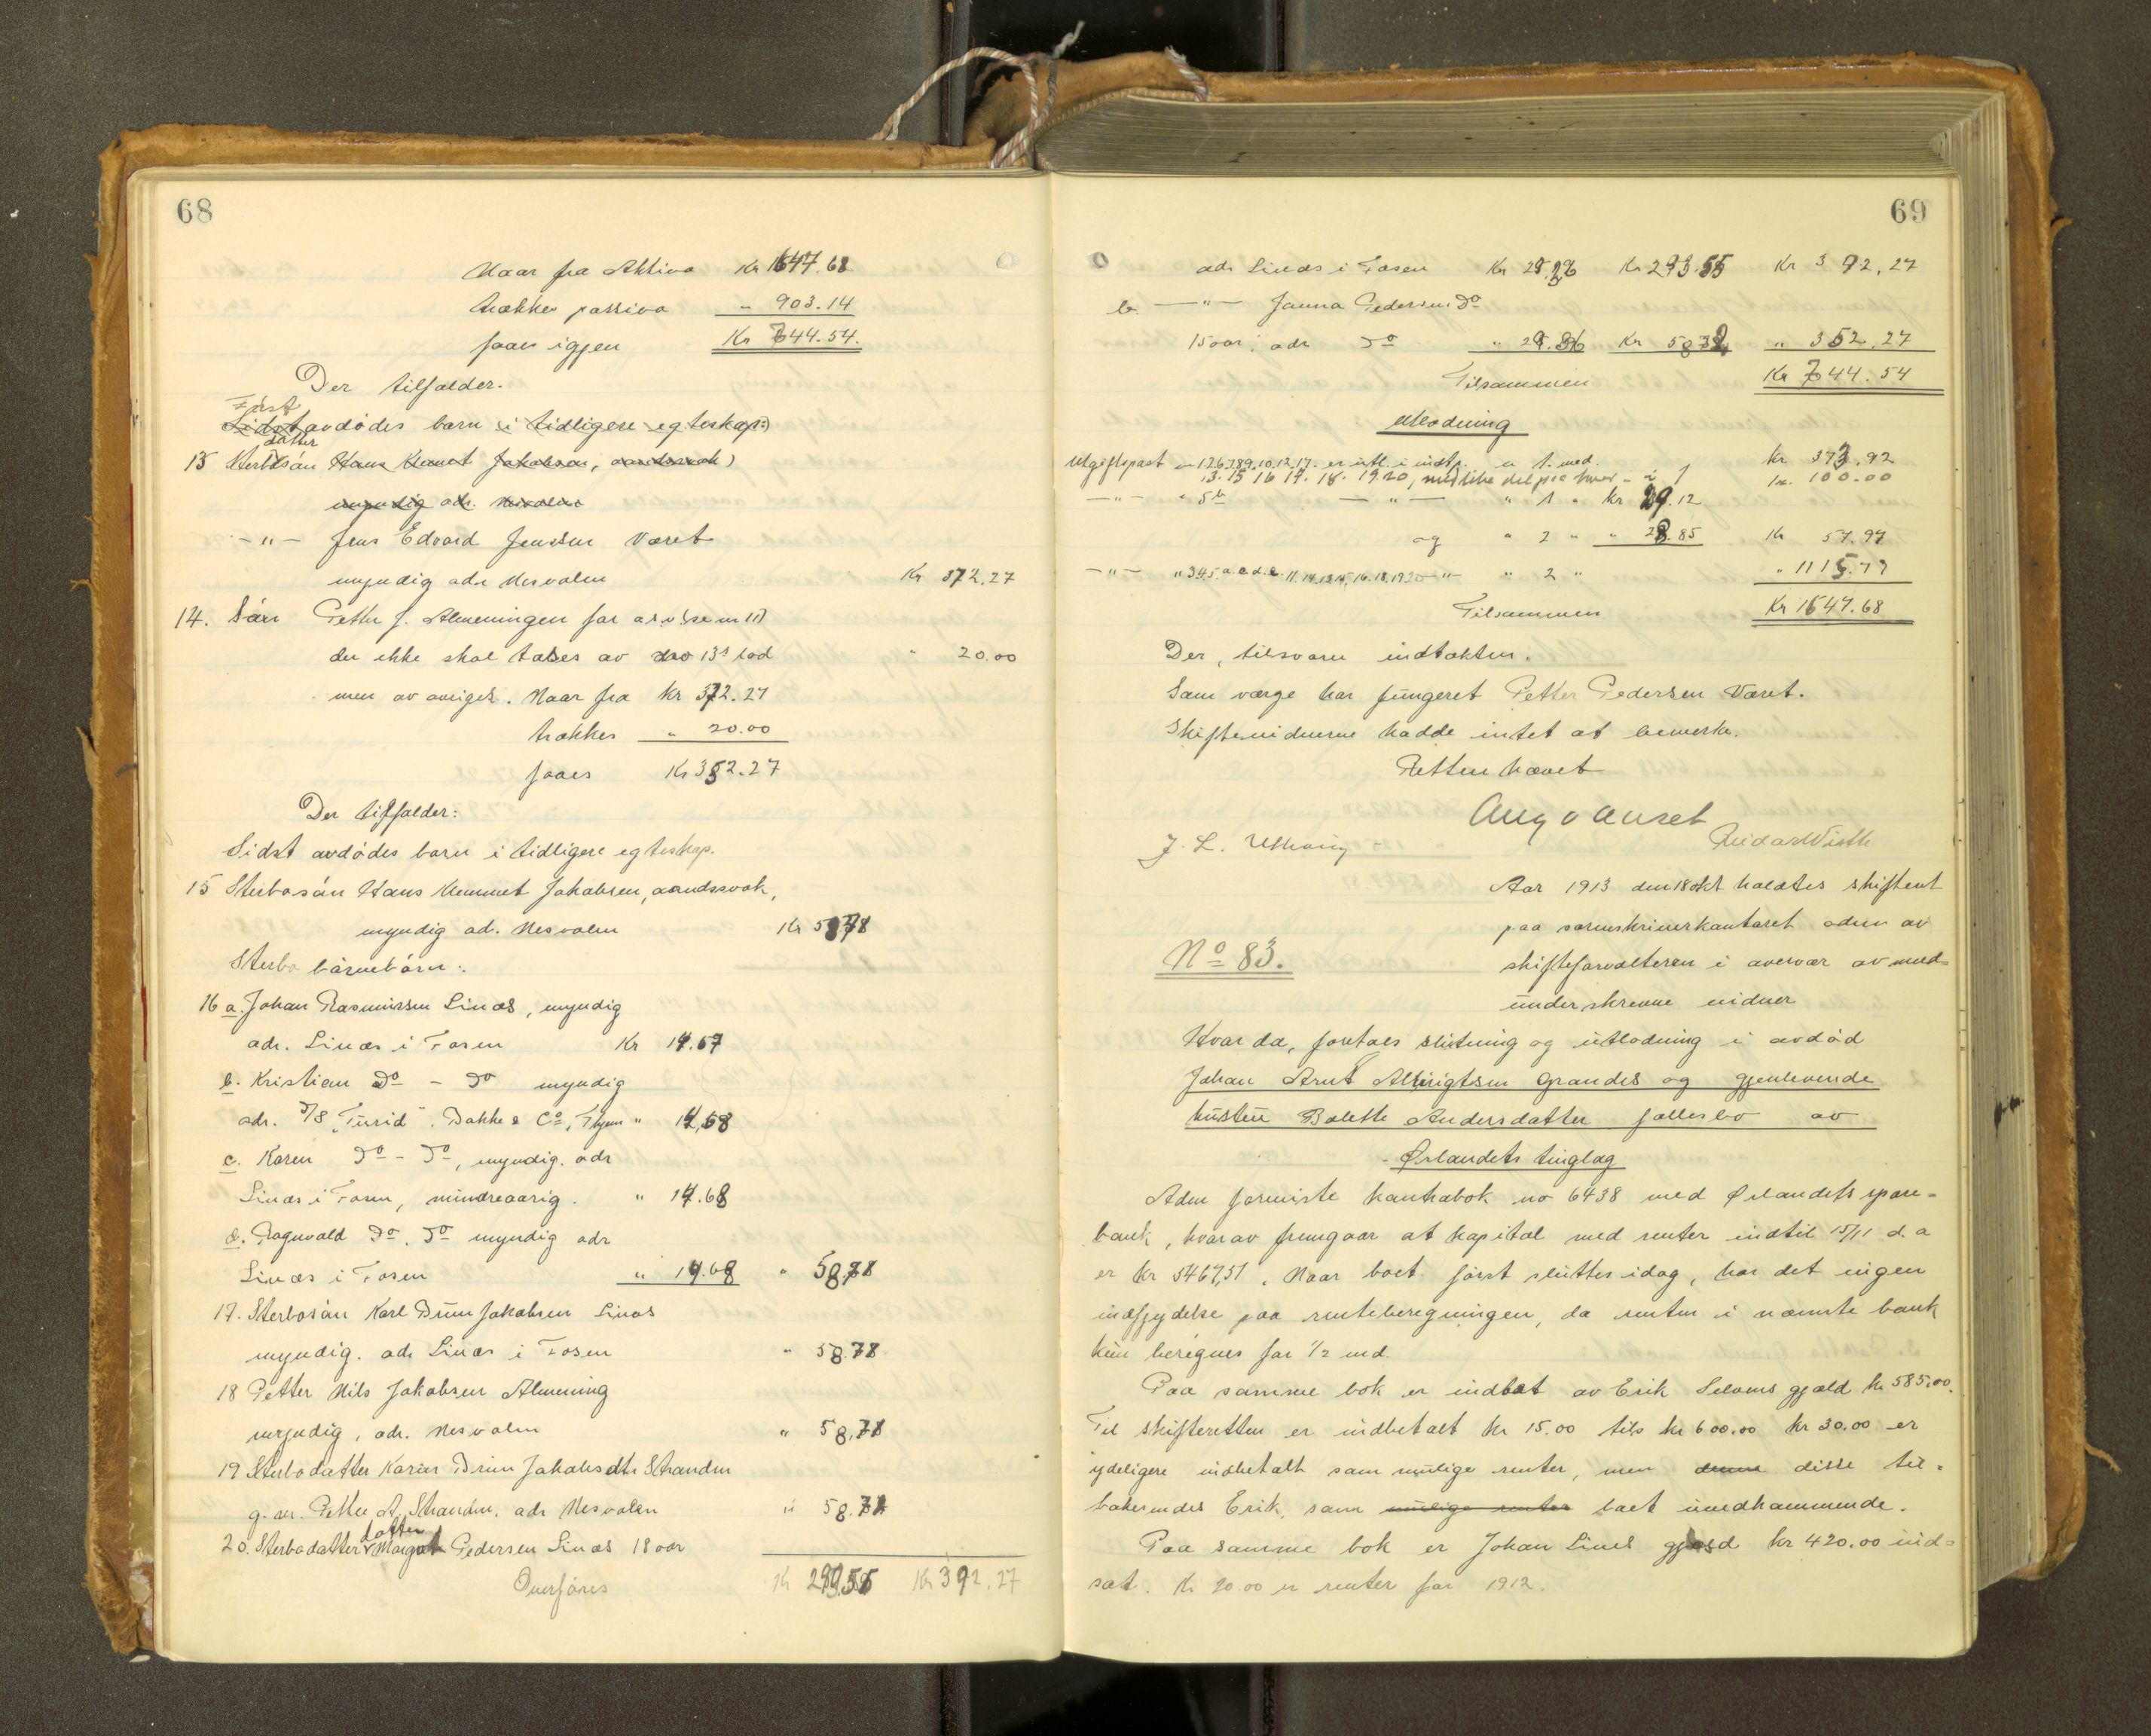 68
Naar fra Aktiva Kr 1647.68
trækkes passiva " 903.14
faaes igjen Kr 744.54.
Der tilfalder.
Først
Sidst avdødes barn i tidligere egteskap:
datter
13 Sterbosøn Hans Kummet Jakobsen, aandssvak)
myndig adr. Nesvalen
-"- Jens Edvard Jenssen Været
myndig adr Nesvalen Kr 372.27
14. Søn Petter J. Almenningen far arv (se nr 11)
der ikke skal tages av dro 13s lod " 20.00
men av øvriges. Naar fra Kr 372.27
trækkes " 20.00
faaes Kr 352.27
Der tilfalder:
Sidst avdødes barn i tidligere egteskap.
15 Sterbosøn Hans Kummet Jakobsen, aandssvak,
myndig ad. Nesvalen Kr 58.78
Sterbo børnebørn:
16 a. Johan Rasmussen Linæs, myndig
adr. Linæs i Fosen Kr 14.67
b. Kristian Do - Do myndig
adr. D/S "Turid". Bakke & Co, Thjem " 14,68
c. Karen Do - Do, myndig. adr
Linæs i Fosen, mindreaarig. " 14.68
d. Ragnvald Do. Do myndig adr
Linæs i Fosen " 14.68 " 58.71
17. Sterbosøn Karl Brun Jakobsen Linæs
myndig. adr Linæs i Fosen " 58.71
18 Petter Nils Jakobsen Almening
myndig, adr. Nesvalen " 58,71
19 Sterbodatter Karen Brun Jakobsdtr Stranden
g. m. Petter A. Stranden, adr Nesvalen " 58.71
datter
20. Sterbodatter Margot Pedersen Linæs 18 aar
Overføres Kr 293.55 Kr 392.27
69
adr Linæs i Fosen Kr 29.36 Kr 293.55 Kr 392,27
b. -"- Janna Pedersen Do
15 aar, adr Do " 29.36 Kr 58.72 " 352.27
Tilsammen Kr 744.54
Utlodning
Utgiftspost nr 1.2.6.7.8.9.10.12.17. er utl. i indtp. nr 1. med. Kr 373,92
13. 15 16 17. 18. 19.20, med like del paa hver - i Kr. 100.00
-"- " 5 b -"- " 1 " Kr 29.12
og " 2 " " 28.85 Kr 57.97
-"- " 3 4 5 a.c.d.e. 11.14.13.15.16.18.19 20 -"- " 2 " " 1115.79
Tilsammen Kr 1647.68
Der, tilsvarer indtækten.
Som værge har fungeret Petter Pedersen Været.
Skiftevidnerne hadde intet at bemerke.
Retten hævet
Aug v Auset
J. L. Uthaug Reidar Wirth
Aar 1913 den 18 okt holdtes skifteret
paa sorenskriverkontoret aden av
No 83. skifteforvalteren i overvær av med-
underskrevne vidner
Hvor da, foretoes slutning og utlodning i avdød
Johan Arnt Albrigtsen Grandes og gjenlevende
hustru Bolette Andersdatter fællesbo av
Ørlandets tinglag
Aden forviste kontrabok no 6438 med Ørlandets spare-
bank, hvorav fremgaar at kapital med renter indtil 15/11 d. a
er Kr 5467,51. Naar boet først sluttes idag, har det ingen
indflydelse paa renteberegningen, da renten i nævnte bank
kun beregnes for 1/2 md.
Paa samme bok er indsat av Erik Selvens gjæld kr 585,00.
Til skifteretten er indbetalt kr 15.00 tils kr 600.00 kr 30.00 er
ydeligere indbetalt som mulige renter, men denne disse til-
bakesendes Erik, som mulige renter boet uvedkommende.
Paa samme bok er Johan Lines gjæld kr 420.00 ind-
sat. Kr 20.00 er renter for 1912.